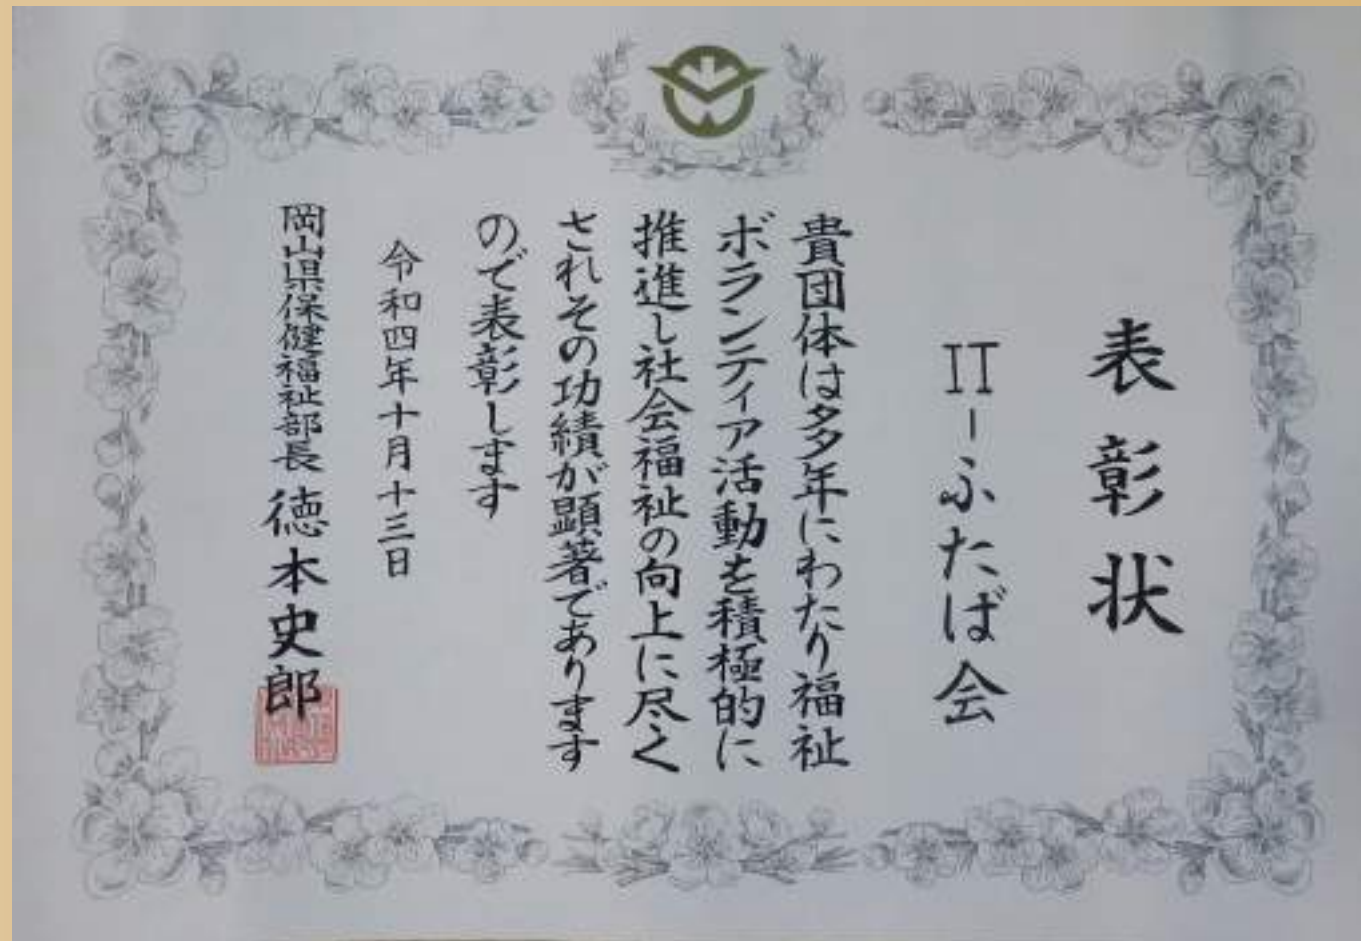 表彰状
IT-ふたば会
貴団体は多年にわたり福祉
ボランティア活動を積極的に
推進し社会福祉の向上に尽く
されその功績が顕著であります
ので表彰します
令和四年十月十三日
岡山県保健福祉部長 徳本史郎